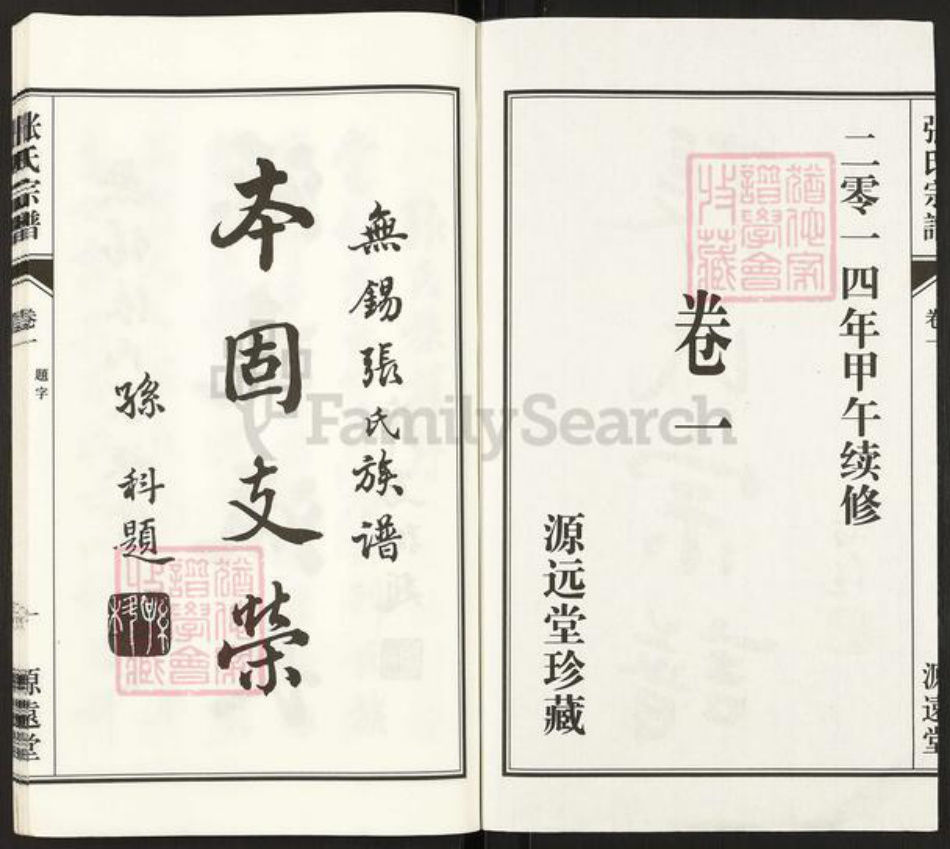 张氏宗谱
卷一
源遠堂
二零一四年甲午续修
卷一
源远堂珍藏
猶他家
譜學會
收藏
無錫張氏族谱
本固支榮
孫科題
孫科
猶他家
譜學會
收藏
张氏宗谱
卷一
題字
一
源遠堂
FamilySearch